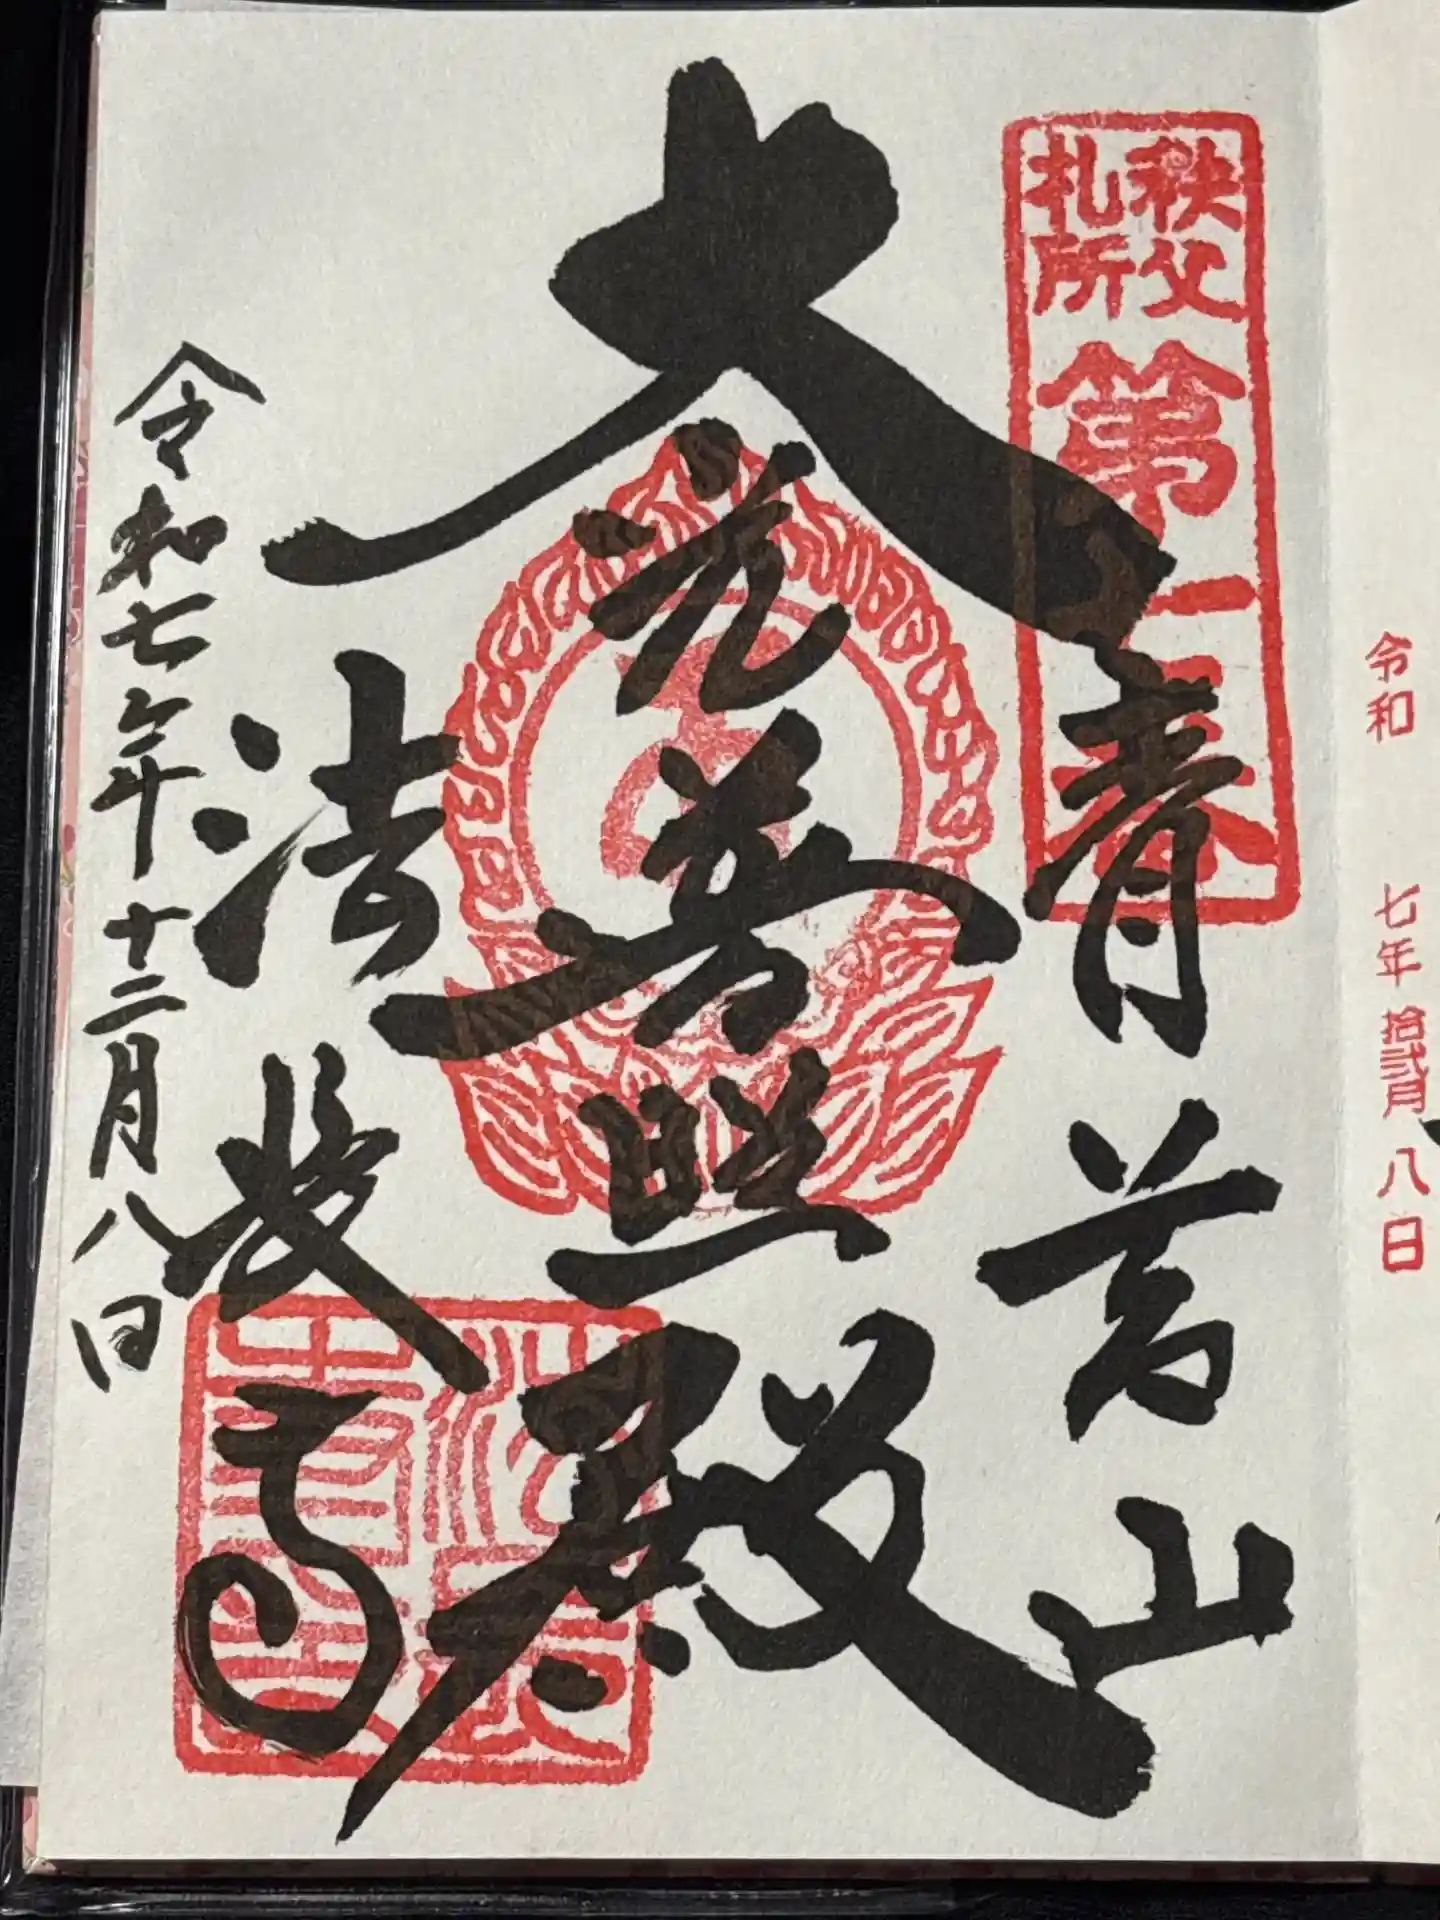 令和 七年 拾弐月 八日
秩父
札所
第七番
青苔山
大光普照殿
法長寺
令和七年十二月八日